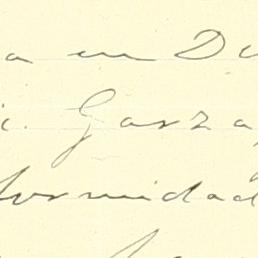 a en Du
c. Garza,
formidad